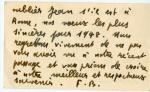 oublier Jean s'il est à
Rome, nos vœux les plus
sincères pour 1948. Nous
regrettons vivement de ne pas
vous avoir vu à notre récent
passage et vous prions de croire
à notre meilleur et respectueux
souvenir. F. B.